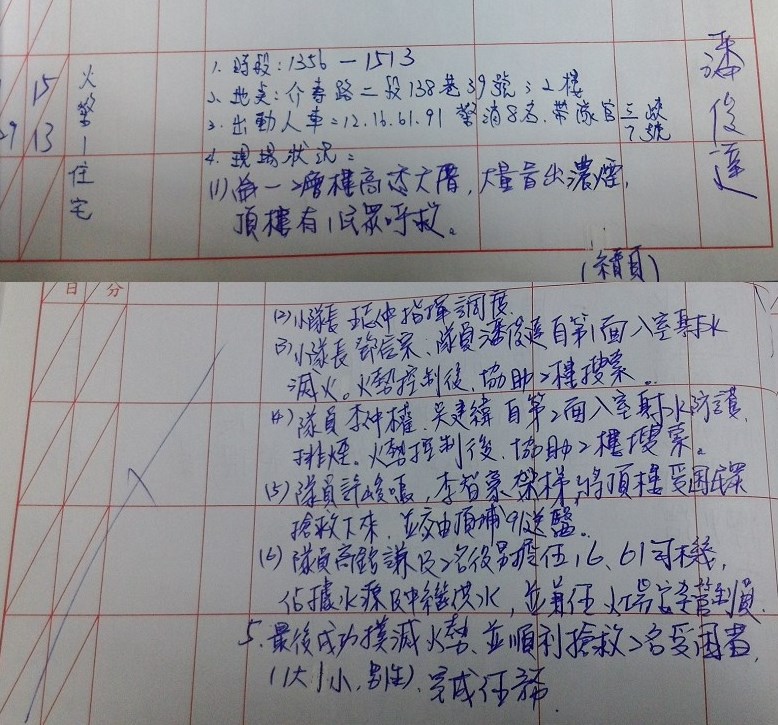 15
13
火警1住宅
1. 時段：1356 — 1513
2. 地點：介壽路二段138巷39號；2樓
3. 出動人車：12.16.61.91 警消8名.帶隊官三峽
7號
4. 現場狀況：
(1)為一2層樓高透天厝，大量冒出濃煙，
頂樓有1民眾呼救。
潘俊達
(續頁)
日 分
(2)小隊長 指揮調度.
(3)小隊長 、隊員潘俊達自第1面入室射水
滅火。火勢控制後，協助2樓搜索。
(4)隊員李仲權、吳建緯自第2面入室射水防護、
排煙。火勢控制後，協助2樓搜索。
(5)隊員許峻 ，李智豪架梯，將頂樓受困民眾
搶救下來，並交由頂埔91送醫。
(6)隊員高銘謙及2名役男擔任16、61司機，
佔據水源及中繼供水，並兼任火場安全管制員.
5.最後成功撲滅火勢、並順利搶救2名受困者.
(1大1小，男性).完成任務